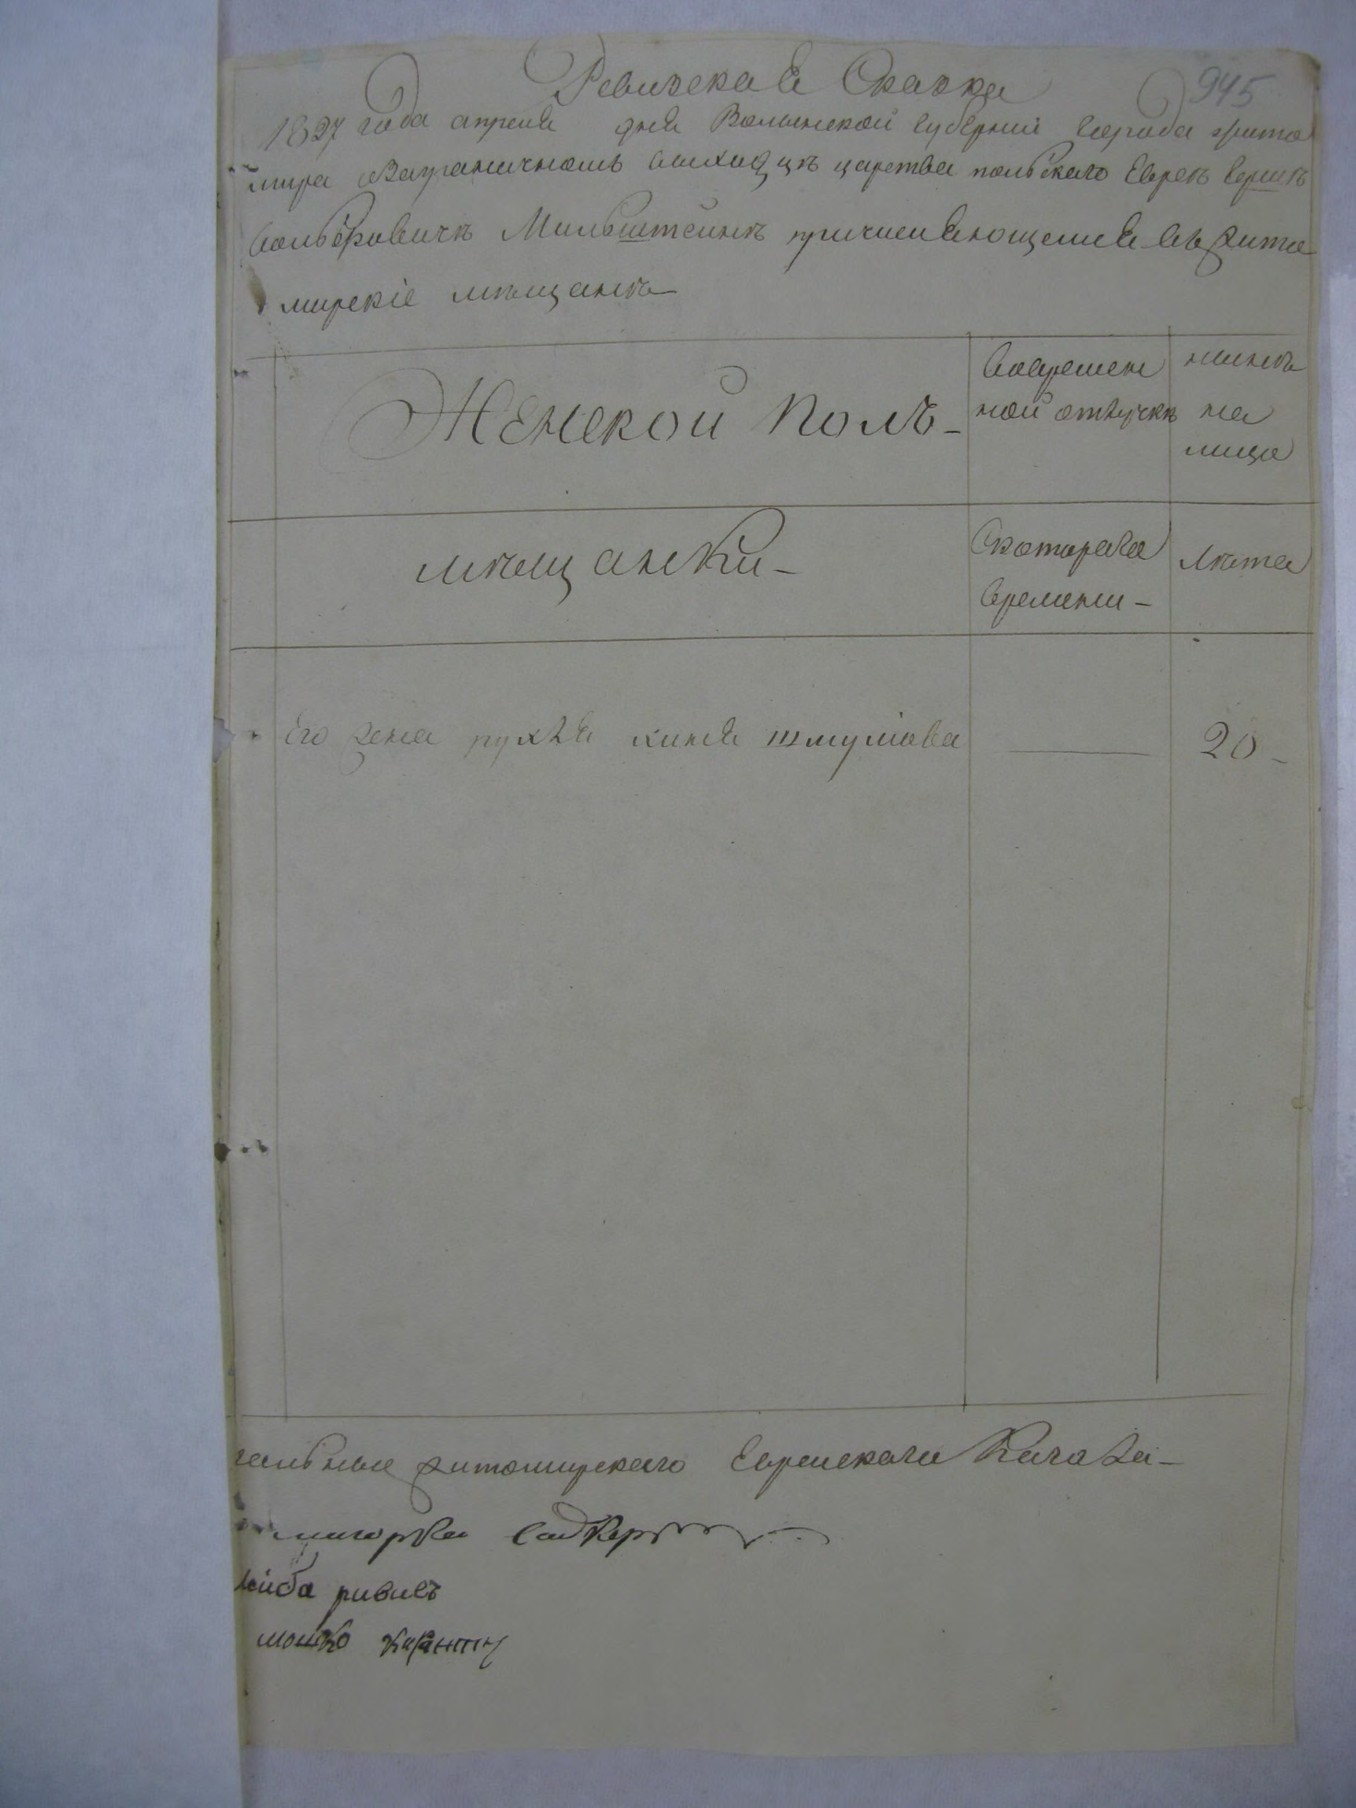 Ревизская Сказка
945
1827 года апреля дня Волынской губернии города Жито
мира Заграничномъ выходцѣ царства польскаго Евреѣ Бершкѣ
Вольфовичѣ Мильштейнѣ причисляющемся въ Жито
мирскіе мѣщанѣ
Женской полъ
вовремен
ной отлучкѣ
нынѣ
на
лицо
мѣщанки
Скотораго
времени
лѣта
Его жена рухля хиня шмулова
20
тельные житомирскаго Еврейскаго Кагала
лейба ривисъ
мошко